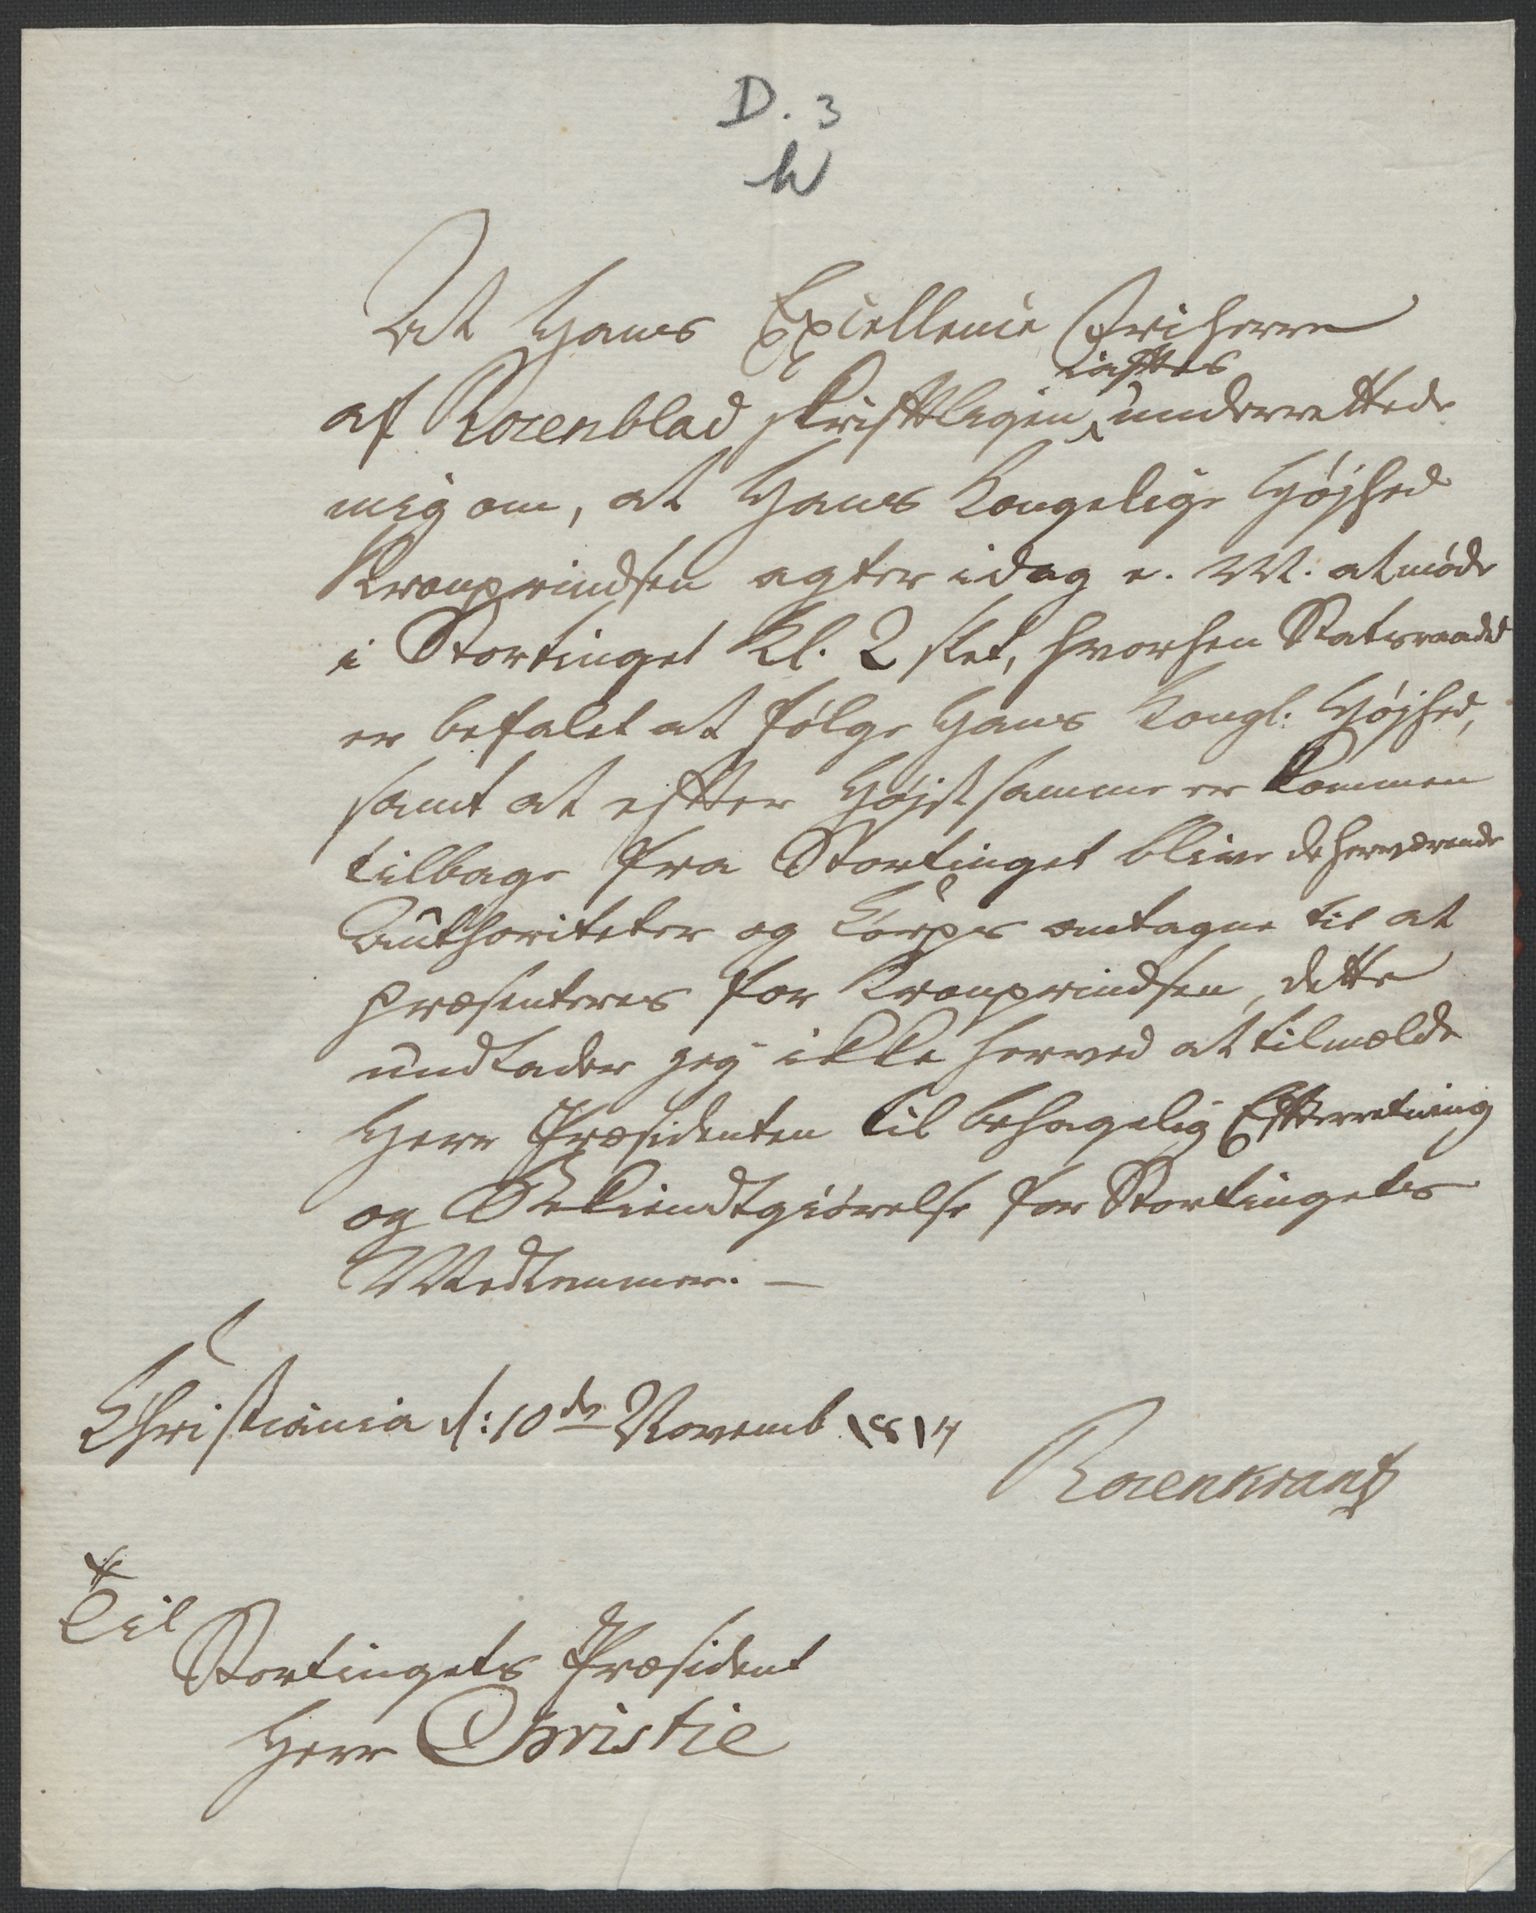 D. 3
h
At Hans Excellence Friherre
af Rosenblad skriftligen
underrettede
mig om, at Hans Kongelige Højhed
Kronprindsen agter idag e. M. at møde
i Stortinget Kl. 2 slet, hvorhen Statsraadet
er befalet at følge Hans Kongl: Højhed,
samt at efter Højstsamme er kommen
tilbage fra Stortinget blive de herværende
Authoriteter og Corps antagne til at
præsenteres for Kronprindsen, dette
undlader jeg ikke herved at tilmælde
Herr Præsidenten til behagelig Efterretning
og Bekiendtgiørelse for Stortingets
Medlemmer. —
Christiania d: 10de Novemb 1814
Rosenkrantz
Til
Stortingets Præsident
Herr Christie